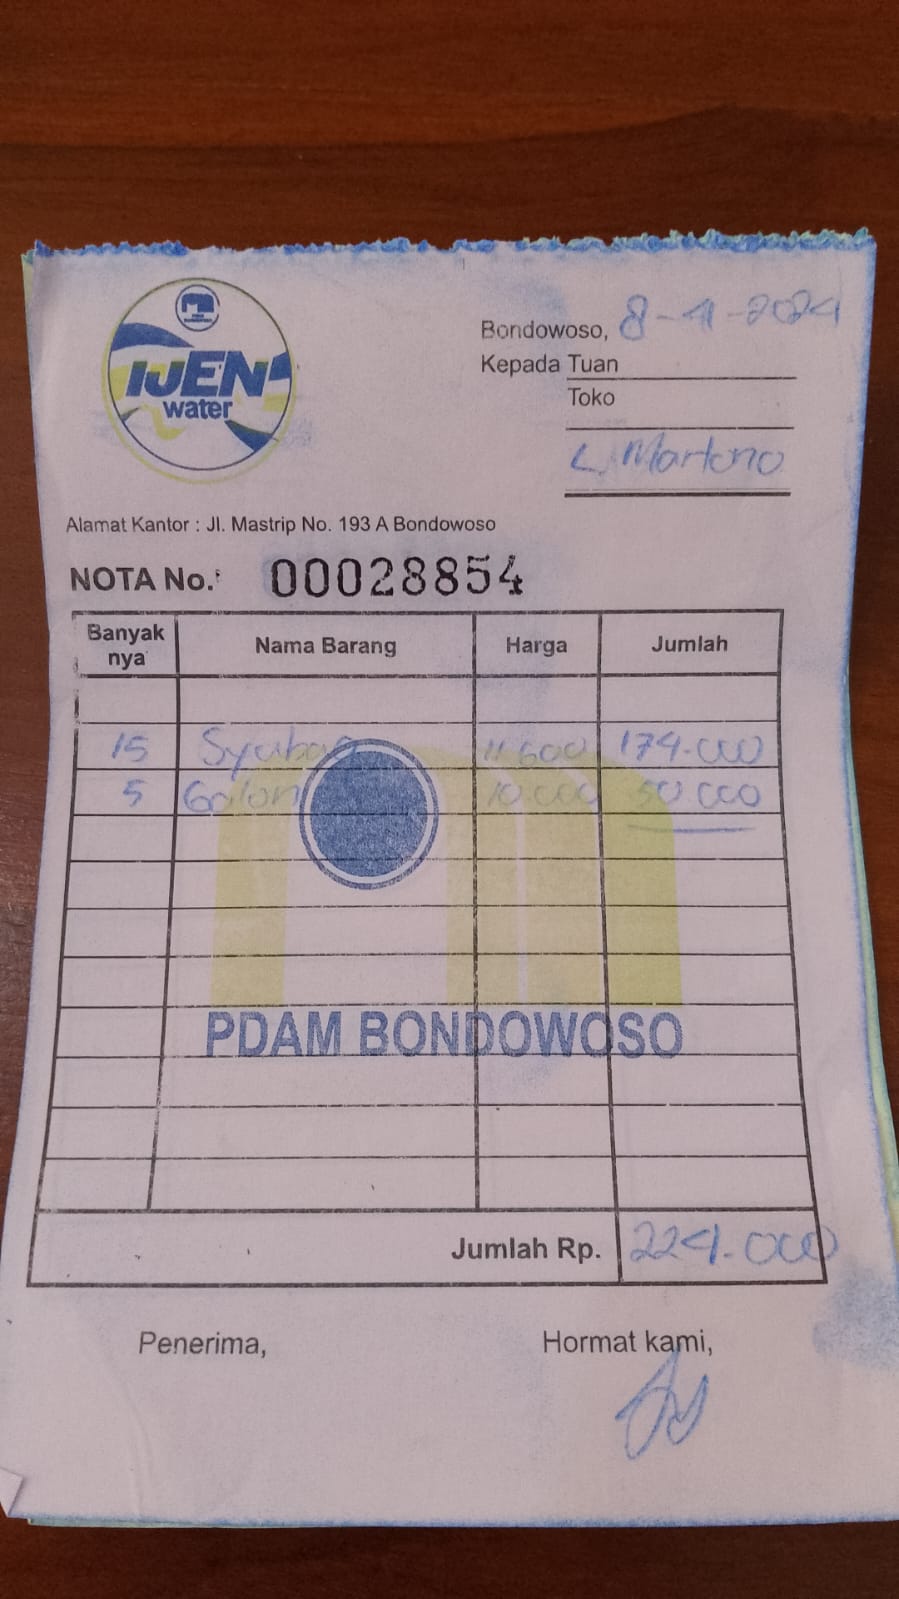 IJEN
water
Bondowoso, 8-4-2024
Kepada Tuan
Toko
L. Martono
Alamat Kantor : Jl. Mastrip No. 193 A Bondowoso
NOTA No. 00028854
Banyak nya Nama Barang Harga Jumlah
15 11 600 174.000
5 Galon 10.000 50.000
PDAM BONDOWOSO
Jumlah Rp. 224.000
Penerima, Hormat kami,